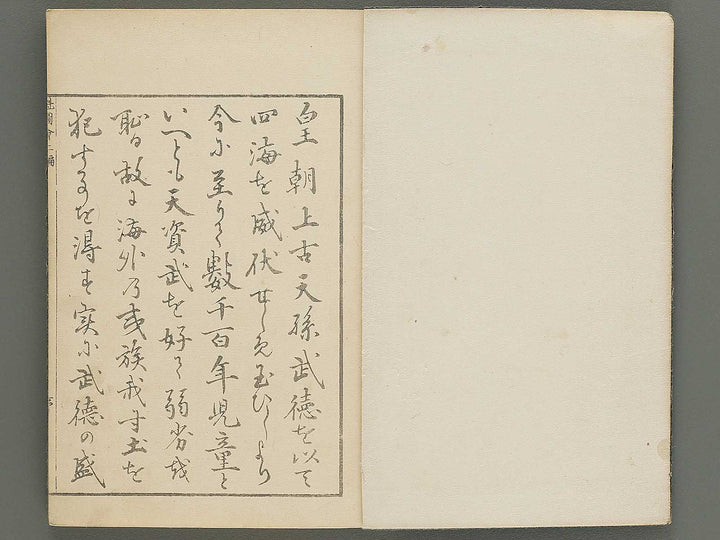 皇朝上古天孫武徳を以て
四海を威伏せしめ玉ひしより
今に至りて數千百年児童と
いへとも天資武を好て弱劣を
恥る故に海外の夷族我寸土を
犯す事を得す実に武徳の盛